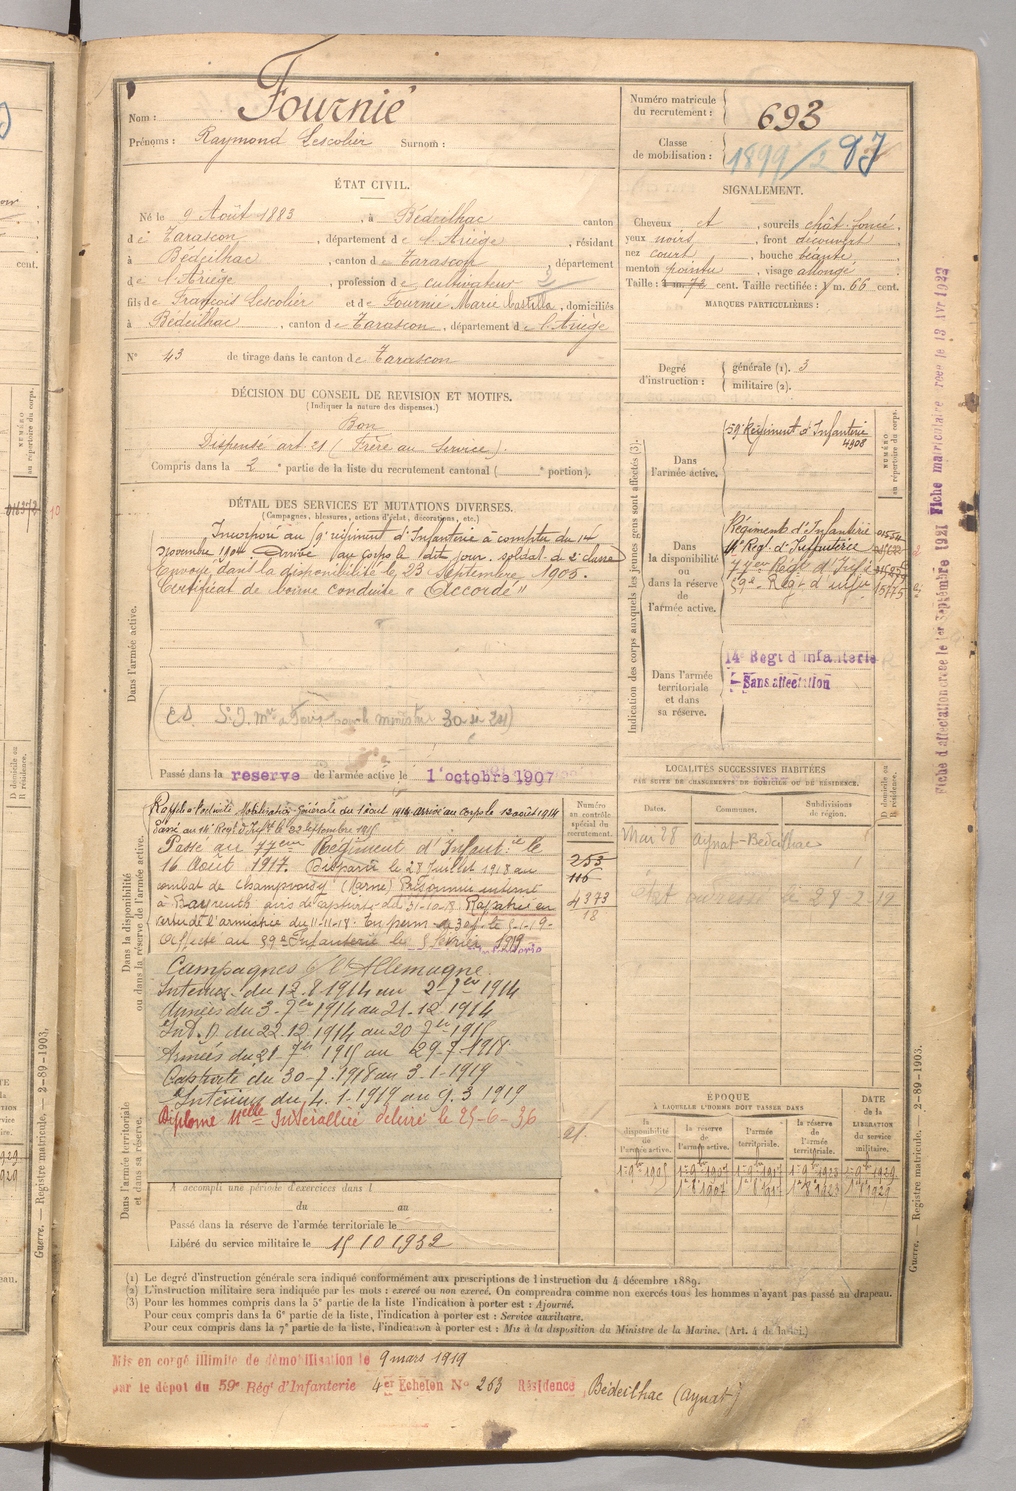 Nom : Fournié
Prénoms : Raymond Lescolier Surnom :
Numéro matricule du recrutement : 693
Classe de mobilisation : 1899/2
ÉTAT CIVIL.
Né le 9 Août 1883, à Bédeilhac canton
de Tarascon, département de l'Ariège, résidant
à Bédeilhac, canton de Tarascon, département
de l'Ariège, profession de cultivateur
fils de François Lescolier et de Fournié Marie Castilla, domiciliés
à Bédeilhac, canton de Tarascon, département de l'Ariège
N° 43 de tirage dans le canton de Tarascon
SIGNALEMENT.
Cheveux et, sourcils chât. foncé,
yeux noirs, front découvert
nez court, bouche béante,
menton pointu, visage allongé
Taille : 1 m. cent. Taille rectifiée : 1 m. 66 cent.
MARQUES PARTICULIÈRES :
Degré d'instruction : générale (1). 3
militaire (2).
DÉCISION DU CONSEIL DE REVISION ET MOTIFS.
(Indiquer la nature des dispenses.)
Bon
Dispensé art. 21 (Frère au Service).
Compris dans la 2e partie de la liste du recrutement cantonal ( e portion).
DÉTAIL DES SERVICES ET MUTATIONS DIVERSES.
(Campagnes, blessures, actions d'éclat, décorations, etc.)
Dans l'armée active.
Incorporé au 59e régiment d'Infanterie à compter du 14
Novembre 1904 Arrivé au corps le dit jour. soldat de 2e classe
Envoyé dans la disponibilité le 23 Septembre 1905.
Certificat de bonne conduite "Accordé"
Passé dans la reserve de l'armée active le 1er octobre 1907
Indication des corps auxquels les jeunes gens sont affectés (3).
NUMÉRO au répertoire du corps.
Dans l'armée active.
59e Régiment d'Infanterie
4908
Dans la disponibilité ou dans la réserve de l'armée active.
Régiment d'Infanterie
14e Regt d'Infanterie
77e Régt d'Infie
59e Reg d'infie
Dans l'armée territoriale et dans sa réserve.
14e Regt d'infanterie
Sans affectation
Dans la disponibilité ou dans la réserve de l'armée active.
Rappelé à l'activité Mobilisation Générale du 1 août 1914 arrivé au corps le 12 août 1914
Passé au 14e Regt d'Inft le 22 septembre 1915
Passé au 77eme Régiment d'Infantie le
16 Août 1917. Disparu le 28 Juillet 1918 au
combat de Champvoisy (Marne) Prisonnier interné
à Bayreuth avis de capture du 31-10-18 Rapatrié en
vertu de l'armistice du 11-11-18.
Affecté au 59e Infanterie le 5 février 1919
Campagnes c/ l'Allemagne.
Intérieur du 12.8.1914 au 2-7bre 1914
Armées du 3-7bre 1914 au 21-12-1914
Int. D. du 22.12.1914 au 20 7bre 1915
Armées du 21 7bre 1915 au 29-7-1918
Captivité du 30-7-1918 au 3-1-1919
Intérieur du 4.1.1919 au 9.3.1919
Diplome Melle Interalliée délivré le 25-6-36
Numéro au contrôle spécial du recrutement.
253
116
4373
18
LOCALITÉS SUCCESSIVES HABITÉES
PAR SUITE DE CHANGEMENTS DE DOMICILE OU DE RÉSIDENCE.
Dates. Communes. Subdivisions de région. D domicile ou R résidence.
Mai 28 Aynat-Bédeilhac
ÉPOQUE
À LAQUELLE L'HOMME DOIT PASSER DANS
la disponibilité de l'armée active. la réserve de l'armée active. l'armée territoriale. la réserve de l'armée territoriale. DATE de la LIBÉRATION du service militaire.
Dans l'armée territoriale et dans sa réserve.
A accompli une période d'exercices dans l
du au
Passé dans la réserve de l'armée territoriale le
Libéré du service militaire le 15 10 1932
(1) Le degré d'instruction générale sera indiqué conformément aux prescriptions de l'instruction du 4 décembre 1889.
(2) L'instruction militaire sera indiquée par les mots : exercé ou non exercé. On comprendra comme non exercés tous les hommes n'ayant pas passé au drapeau.
(3) Pour les hommes compris dans la 5e partie de la liste l'indication à porter est : Ajourné.
Pour ceux compris dans la 6e partie de la liste, l'indication à porter est : Service auxiliaire.
Pour ceux compris dans la 7e partie de la liste, l'indication à porter est : Mis à la disposition du Ministre de la Marine. (Art. 4 de la loi.)
Mis en congé illimité de démobilisation le 9 mars 1919
par le dépôt du 59e Rég d'Infanterie 4er Echelon N° 253 Résidence Bédeilhac (Aynat)
Guerre. — Registre matricule. — 2-89-1903.
Guerre. — Registre matricule. — 2-89-1903.